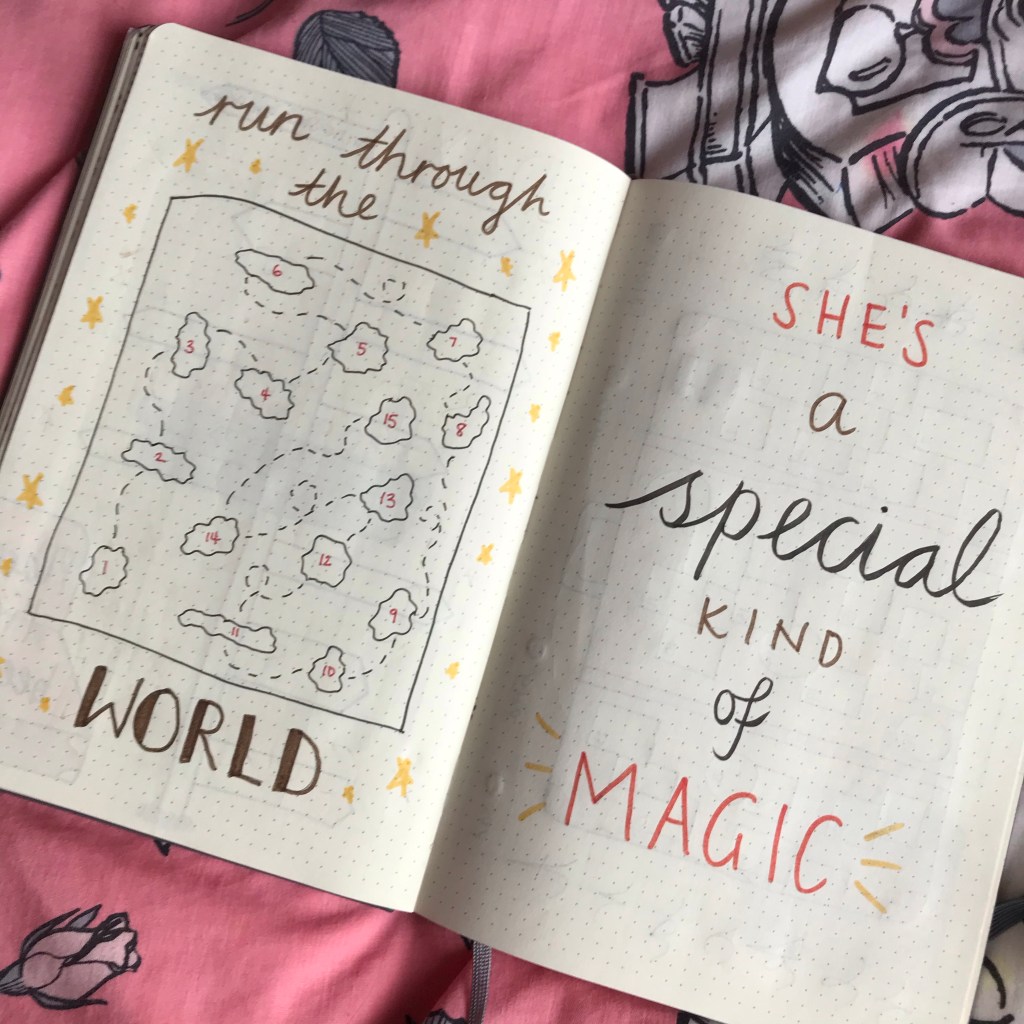 run through
the
6
7
3
5
4
15
8
2
13
14
12
1
9
11
10
WORLD
SHE'S
a
special
KIND
of
MAGIC